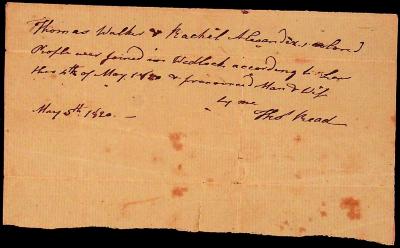 Thomas Walker & Rachel Alexander, colored
People were joined in Wedlock according to Law
this 4th of May 1820 & pronounced Man & Wife
by me
May 5th 1820. — Thos Read